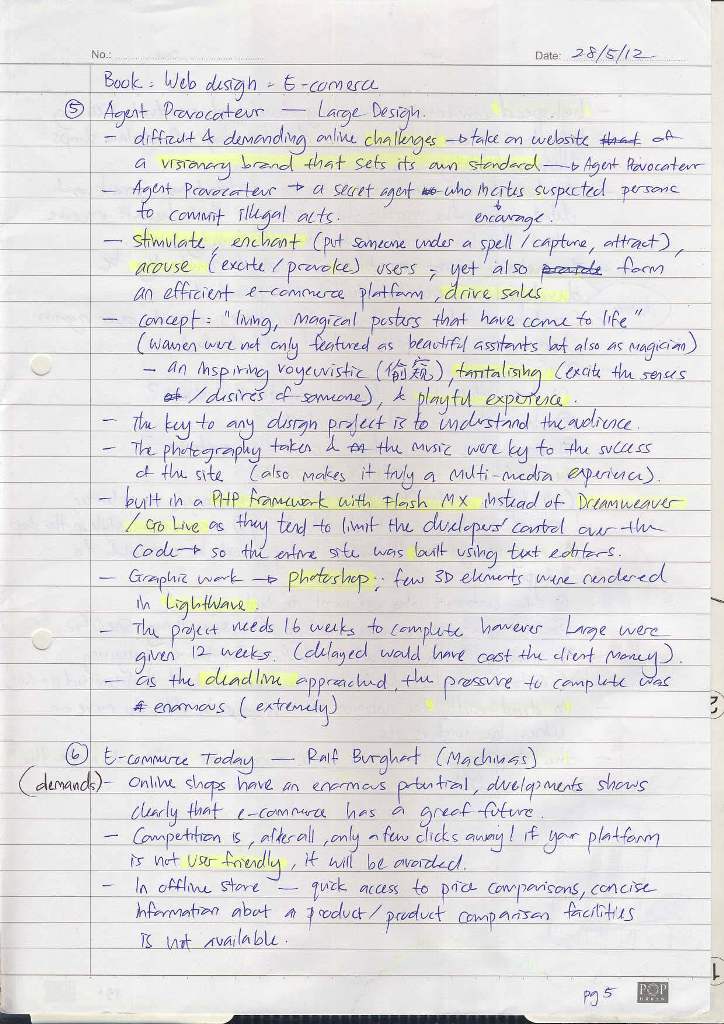 No.: Date: 28/5/12
Book: Web design = E-comerce
⑤ Agent Provocateur — Large Design.
– difficult & demanding online challenges → take on website that of
a visionary brand that sets its own standard → Agent Provocateur
– Agent Provocateur → a secret agent who incites suspected persons
to commit illegal acts. encourage.
– stimulate, enchant (put someone under a spell / capture, attract),
arouse (excite / provoke) users, yet also provide form
an efficient e-commerce platform, drive sales
– concept: "living, magical posters that have come to life"
(women were not only featured as beautiful assitants but also as magician)
– an inspiring voyeuristic (偷窺), tantalising (excite the senses
of / desires of someone), & playful experience.
– The key to any design project is to understand the audience.
– The photography taken & the music were key to the success
of the site (also makes it truly a multi-media experience).
– built in a PHP framework with Flash MX instead of Dreamweaver
/ Go Live as they tend to limit the developers' control over the
code → so the entire site was built using text editors.
– Graphic work → photoshop; few 3D elements were rendered
in LightWave.
– The project needs 16 weeks to complete however Large were
given 12 weeks. (delayed would have cost the client money).
– as the deadline approached, the pressure to complete was
enormous (extremely)
⑥ E-commerce Today — Ralf Burghart (Machinas)
(demands) – Online shops have an enormous potential, developments shows
clearly that e-commerce has a great future.
– Competition is, after all, only a few clicks away! if your platform
is not user friendly, it will be avoided.
– In offline store — quick access to price comparisons, concise
information about a product / product comparison facilities
is not available.
pg 5 POP